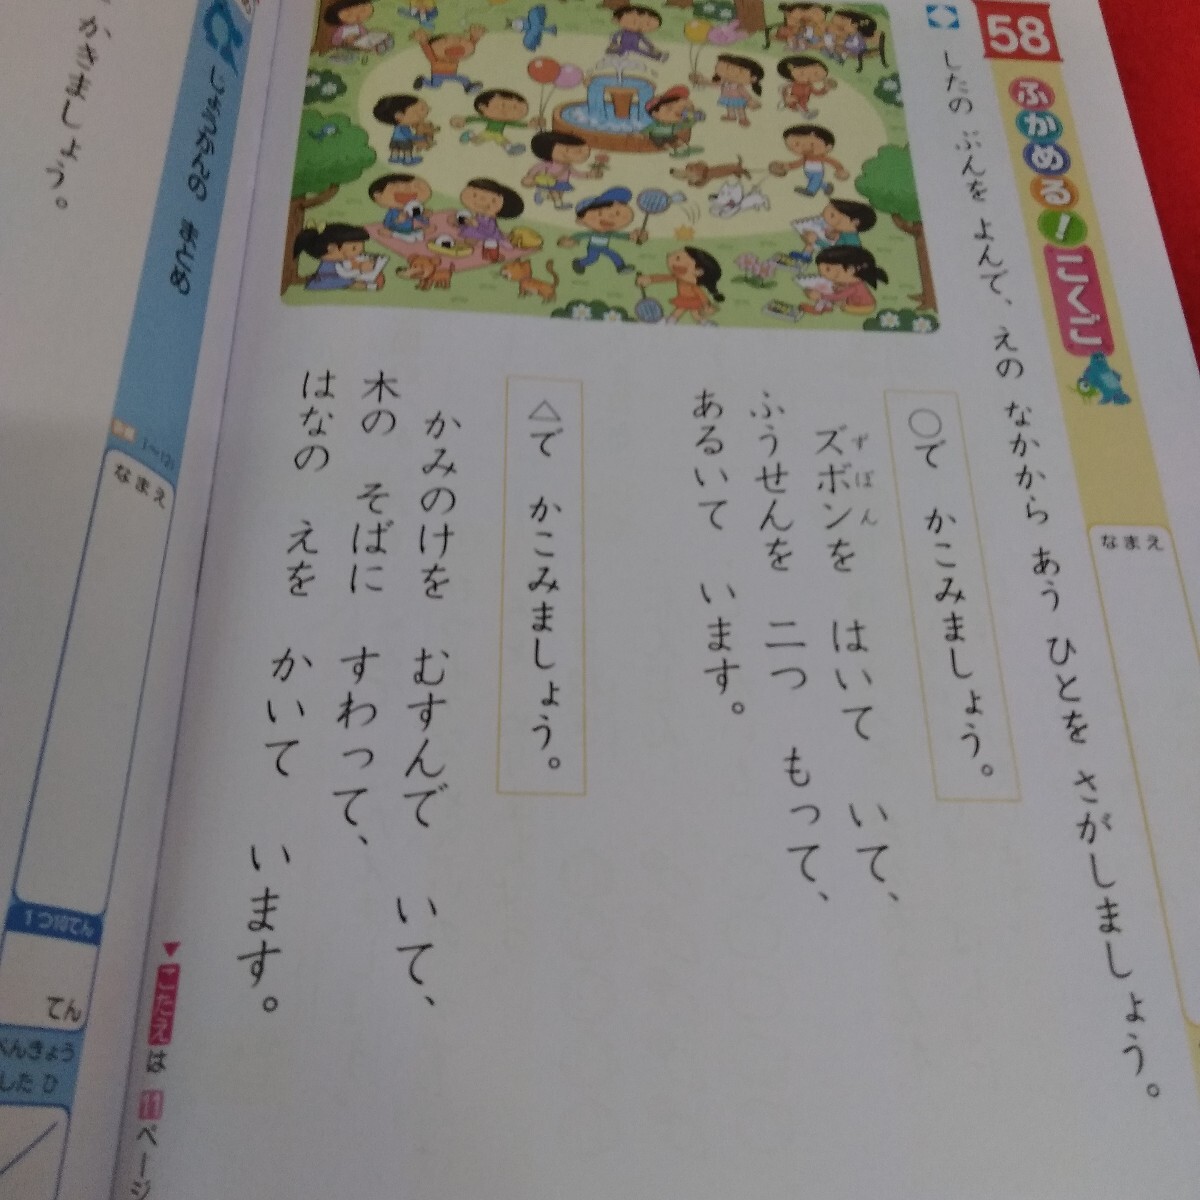 58
ふかめる！こくご
なまえ
したの ぶんを よんで、えの なかから あう ひとを さがしましょう。
○で かこみましょう。
ズボンを はいて いて、
ずぼん
ふうせんを 二つ もって、
あるいて います。
△で かこみましょう。
かみのけを むすんで いて、
木の そばに すわって、
はなの えを かいて います。
▼こたえは 11ページ
なまえ
1つ10てん
てん
べんきょう
した ひ
かきましょう。